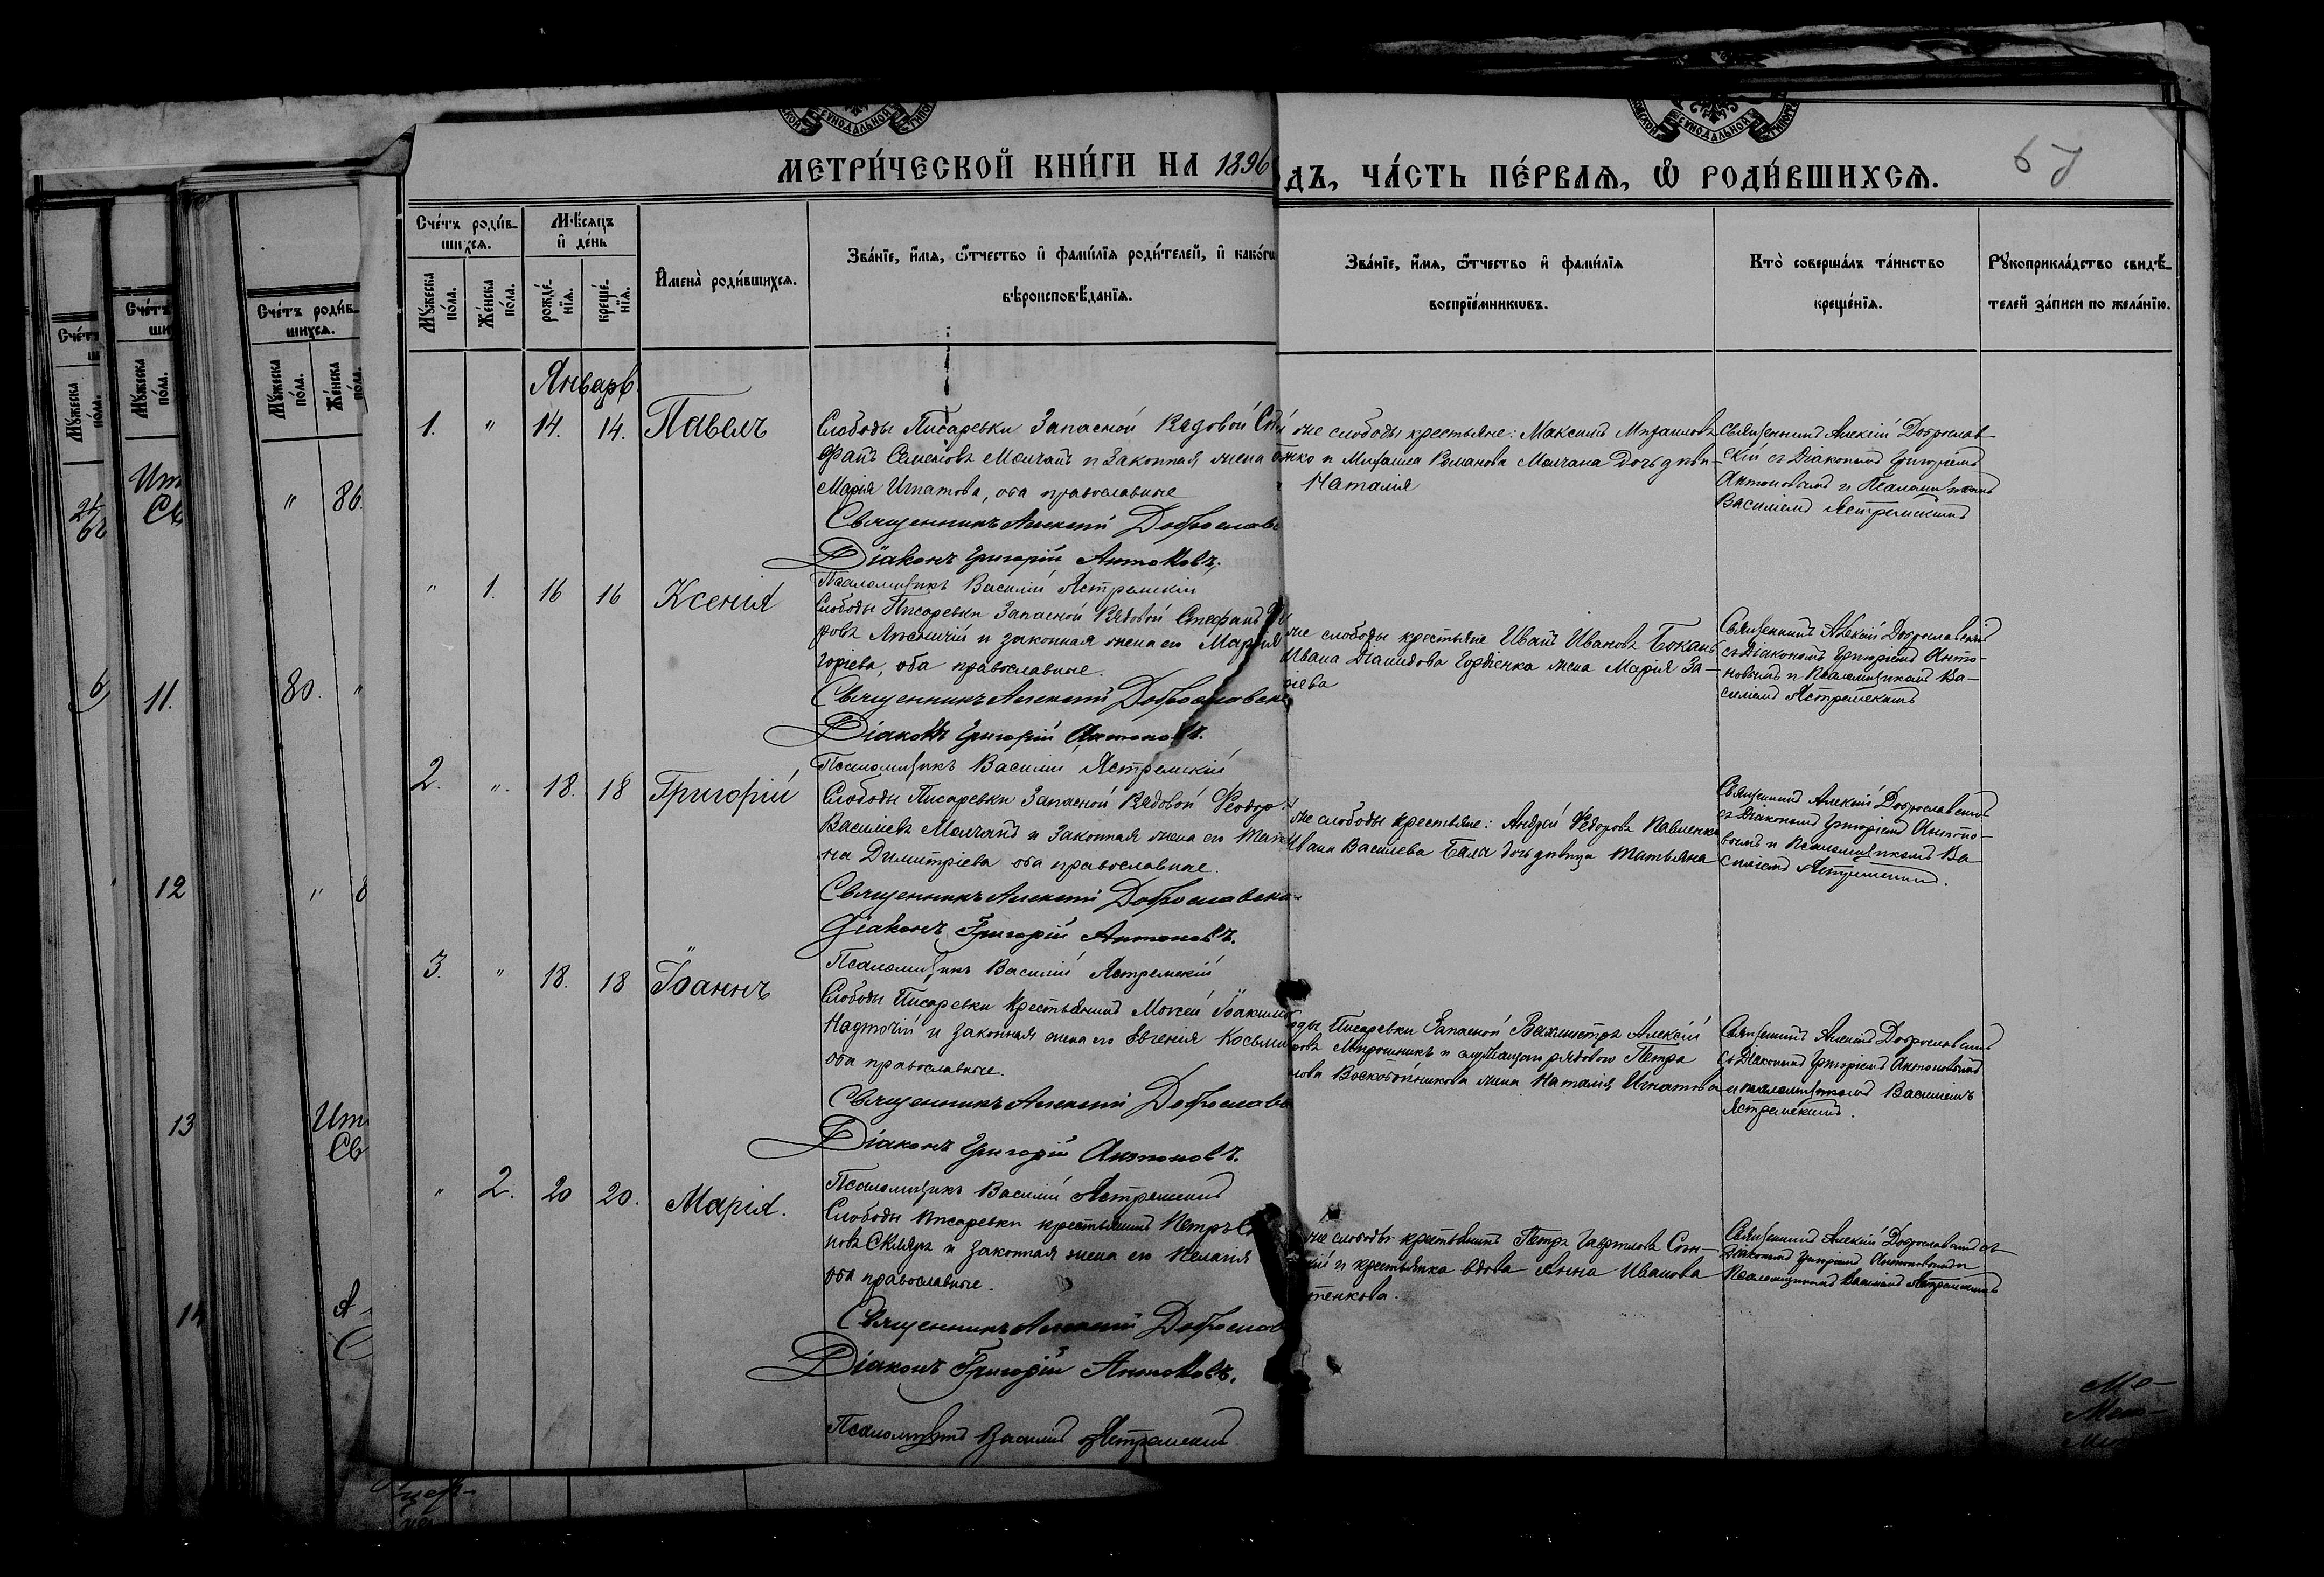 МЕТРИ́ЧЕСКОЙ КНИ́ГИ НА 1896
ДЪ, ЧА́СТЬ ПЕ́РВАѦ, Ѡ҆ РОДИ́ВШИХСѦ.
67
Сче́тъ роди́в-
шихсѧ.
Мѣ́сѧцъ
и҆ де́нь
Мꙋ́жеска
по́ла.
Же́нска
по́ла.
рожде́-
нїѧ.
креще́-
нїѧ.
И҆мена̀ роди́вшихсѧ.
Зва́нїе, и҆́мѧ, ѻ҆́тчество и҆ фамѝлїѧ роди́телей, и҆ како́гѡ
вѣроисповѣ́данїѧ.
Зва́нїе, и҆́мѧ, ѻ҆́тчество и҆ фамѝлїѧ
воспрїе́мникѡвъ.
Кто̀ соверша́лъ та́инство
креще́нїѧ.
Рꙋкоприкла́дство свидѣ́-
телей за́писи по жела́нїю.
Январь
1. " 14. 14. Павелъ
Слободы Писаревки Запасной Рядовой
Семеновъ Молчанъ и законная жена
Марія Игнатова, оба православные
Священникъ Алексій Доброславс
Діаконъ Григорій Антоновъ.
Псаломщикъ Василій Ястремскій
же слободы крестьяне: Максимъ Михаиловъ
и Михаила Романова Молчана дочь дѣви-
Наталія
Священникъ Алексій Доброслав-
скій съ Діакономъ Григоріемъ
Антоновымъ и Псаломщикомъ
Василіемъ Ястремскимъ
" 1. 16 16 Ксенія
Слободы Писаревки Запасной Рядовой Стефанъ
ровъ и законная жена его Марія
горіева, оба православные.
Священникъ Алексій Доброславск
Діаконъ Григорій Антоновъ.
Псаломщикъ Василій Ястремскій
же слободы крестьяне Иванъ Ивановъ Бокань
Ивана Діамидова Гордіенка жена Марія За-
ріева
Священникъ Алексій Доброславскій
съ Діакономъ Григоріемъ Анто-
новымъ и Псаломщикомъ Ва-
силіемъ Ястремскимъ
2. " 18. 18 Григорій
Слободы Писаревки Запасной Рядовой Ѳеодоръ
Василіевъ Молчанъ и законная жена его
на Димитріева оба православные.
Священникъ Алексій Доброславск
Діаконъ Григорій Антоновъ.
Псаломщикъ Василій Ястремскій
же слободы крестьяне: Андрей Ѳедоровъ Павленко
Ивана Василева дочь дѣвица Татьяна
Священникъ Алексій Доброславскій
съ Діакономъ Григоріемъ Антоно-
вымъ и Псаломщикомъ Ва
силіемъ Ястремскимъ.
3. " 18. 18 Іоаннъ
Слободы Писаревки крестьянинъ Моисей Іоакимо
Надточій и законная жена его Евгенія Косьми
оба православные.
Священникъ Алексій Доброславс
Діаконъ Григорій Антоновъ.
Псаломщикъ Василій Ястремскій
оды Писаревки Запасной Вахмистръ Алексій
ровъ Мирошникъ и служащаго рядового Петра
нова Воскобойникова жена Наталія Игнатова
Священникъ Алексій Доброславскій
съ Діакономъ Григоріемъ Антоновымъ
и псаломщикомъ Василіемъ
Ястремскимъ.
" 2. 20 20. Марія.
Слободы Писаревки крестьянинъ Петръ
новъ Скляръ и законная жена его Пелагія
оба православные.
Священникъ Алексій Доброслав
Діаконъ Григорій Антоновъ.
Псаломщикъ Василій Ястремскій
же слободы крестьянинъ Петръ Гавриловъ
и крестьянка вдова Анна Иванова
тенкова.
Священникъ Алексій Доброславскій съ
Діакономъ Григоріемъ Антоновымъ и
Псаломщикомъ Василіемъ Ястремскимъ